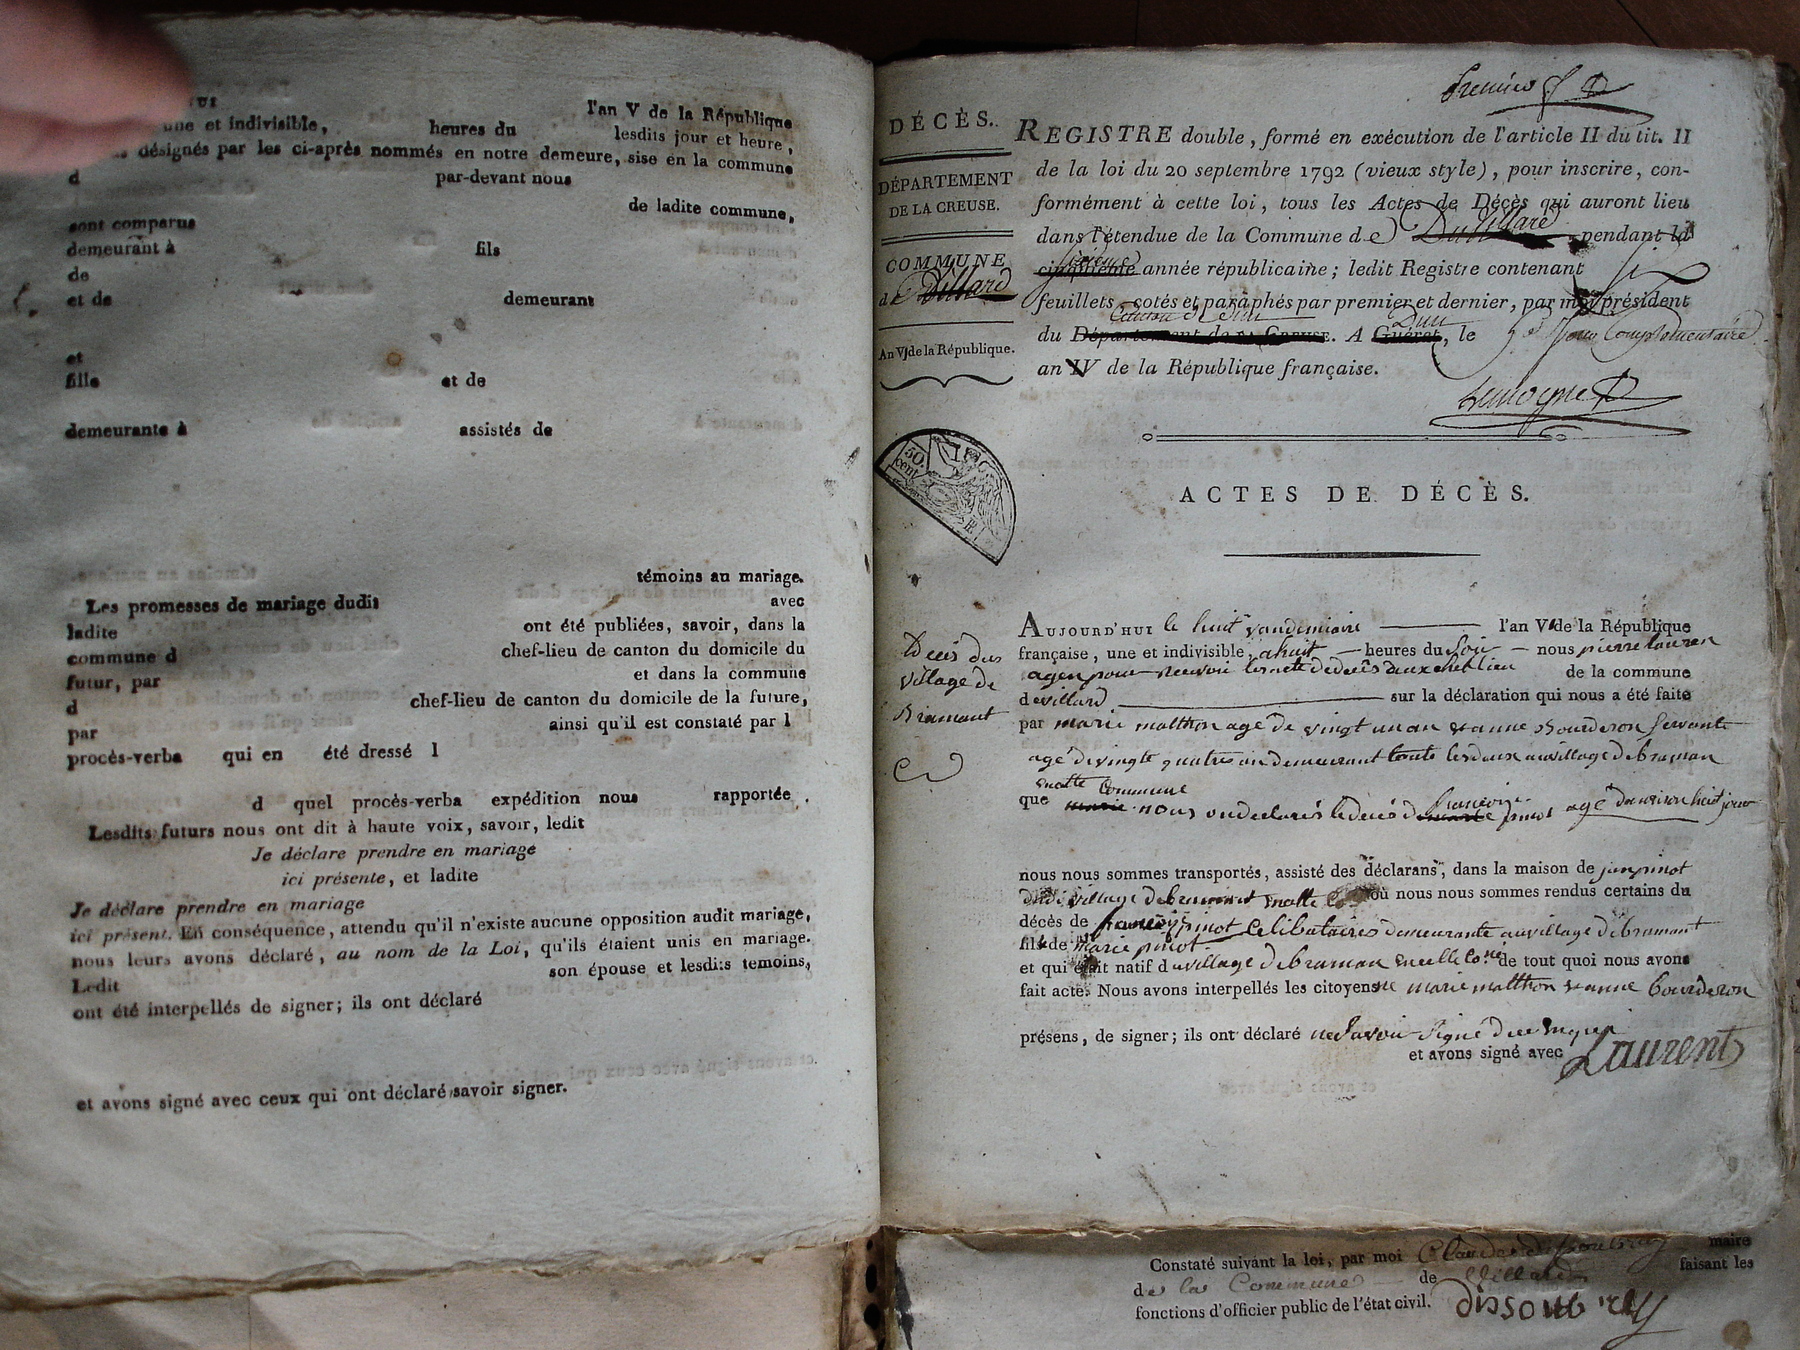 l'an V de la République
une et indivisible, heures du lesdits jour et heure,
désignés par les ci-après nommés en notre demeure, sise en la commune
d par-devant nous
de ladite commune,
sont comparus
demeurant à fils
de
et de demeurant
et
fille et de
demeurante à assistés de
témoins au mariage.
Les promesses de mariage dudit avec
ladite ont été publiées, savoir, dans la
commune d chef-lieu de canton du domicile du
futur, par et dans la commune
d chef-lieu de canton du domicile de la future,
par ainsi qu'il est constaté par l
procès-verba qui en été dressé l
d quel procès-verba expédition nous rapportée.
Lesdits futurs nous ont dit à haute voix, savoir, ledit
Je déclare prendre en mariage
ici présente, et ladite
Je déclare prendre en mariage
ici présent. En conséquence, attendu qu'il n'existe aucune opposition audit mariage,
nous leurs avons déclaré, au nom de la Loi, qu'ils étaient unis en mariage.
Ledit son épouse et lesdits temoins,
ont été interpellés de signer; ils ont déclaré
et avons signé avec ceux qui ont déclaré savoir signer.
DÉCÈS.
DÉPARTEMENT
DE LA CREUSE.
COMMUNE
de Villard
An VI de la République.
50. cent
Premier
REGISTRE double, formé en exécution de l'article II du tit. II
de la loi du 20 septembre 1792 (vieux style), pour inscrire, con-
formément à cette loi, tous les Actes de Décès qui auront lieu
dans l'étendue de la Commune de Villard pendant la
sixieme
cinquième année républicaine; ledit Registre contenant six
feuillets, cotés et paraphés par premier et dernier, par moi président
Canton de Dun Dun
du Département de la Creuse. A Guéret, le 5e Jour Complementaire
an V de la République française.
ACTES DE DÉCÈS.
Décès du
village de
Bramont
AUJOURD'HUI le huit vandemiaire l'an VI de la République
française, une et indivisible, a huit heures du Soir nous pierre lauren
agen pour recevoir les acte de décès de la commune
de villard sur la déclaration qui nous a été faite
par marie malthon agé de vingt un an et anne Bourderon servante
agé de vingte quatre an demeurant toute les deux au village de braman
que commune
marie nous on declarés le décés de françoise pinot agé denviron huit jour
nous nous sommes transportés, assisté des déclarans, dans la maison de jan pinot
dudi village de bramont où nous nous sommes rendus certains du
décès de françois pinot Celibataires demeurante au village de bramant
fils de marie pinot
et qui était natif du village de braman de tout quoi nous avons
fait acte. Nous avons interpellés les citoyenne marie malthon et anne bourderon
présens, de signer; ils ont déclaré ne Savoir Signé
et avons signé avec Laurent
Constaté suivant la loi, par moi maire
de la Commune de Villard faisant les
fonctions d'officier public de l'état civil.